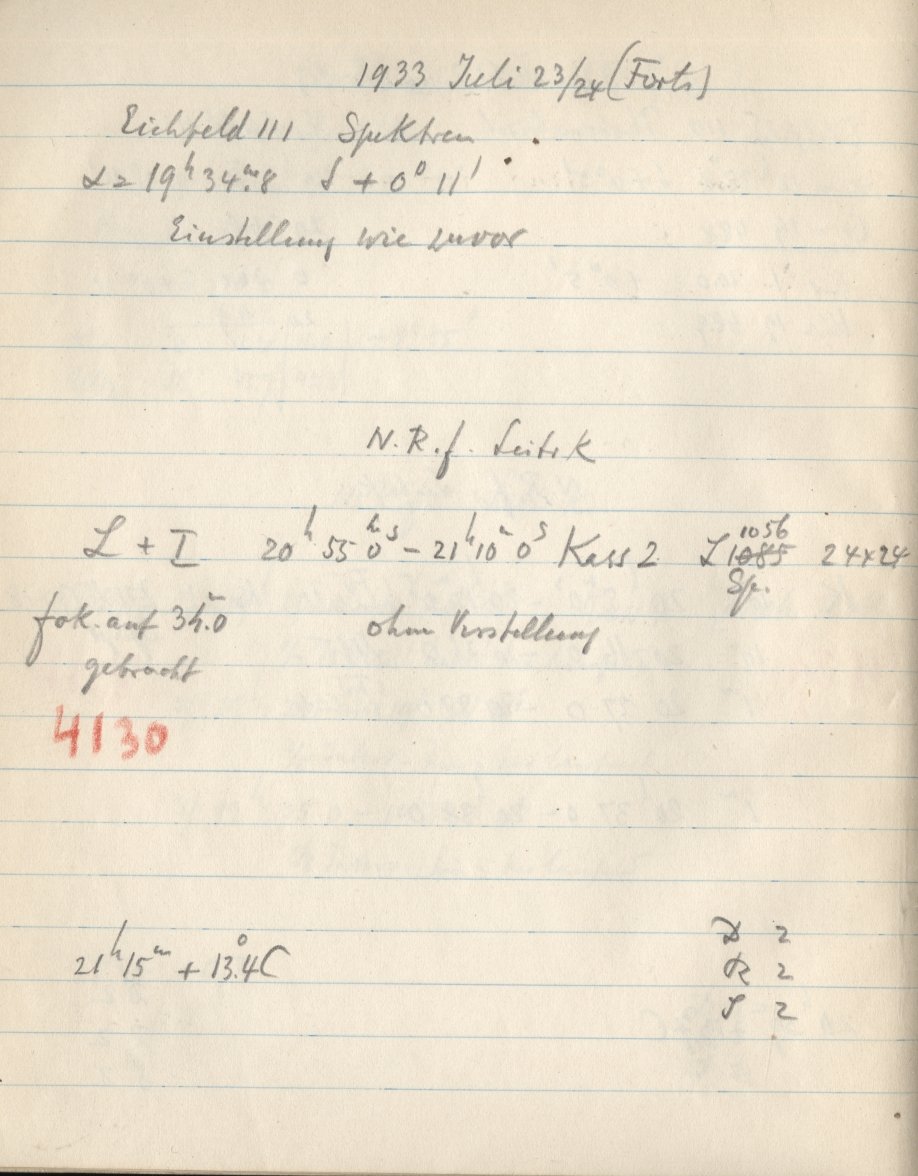 1933 Juli 23/24 (Forts)
Eichfeld III Spektren
α = 19ʰ 34ᵐ.8 δ + 0° 11'
Einstellung wie zuvor
N.R.f. Leitrk
L + I 20ʰ 55ᵐ 0ˢ – 21ʰ 10ᵐ 0ˢ Kass 2 L 1056 24×24
Sp.
fok. auf 34.0 ohne Verstellung
gebracht
4130
21ʰ 15ᵐ + 13.4° C
D 2
R 2
S 2